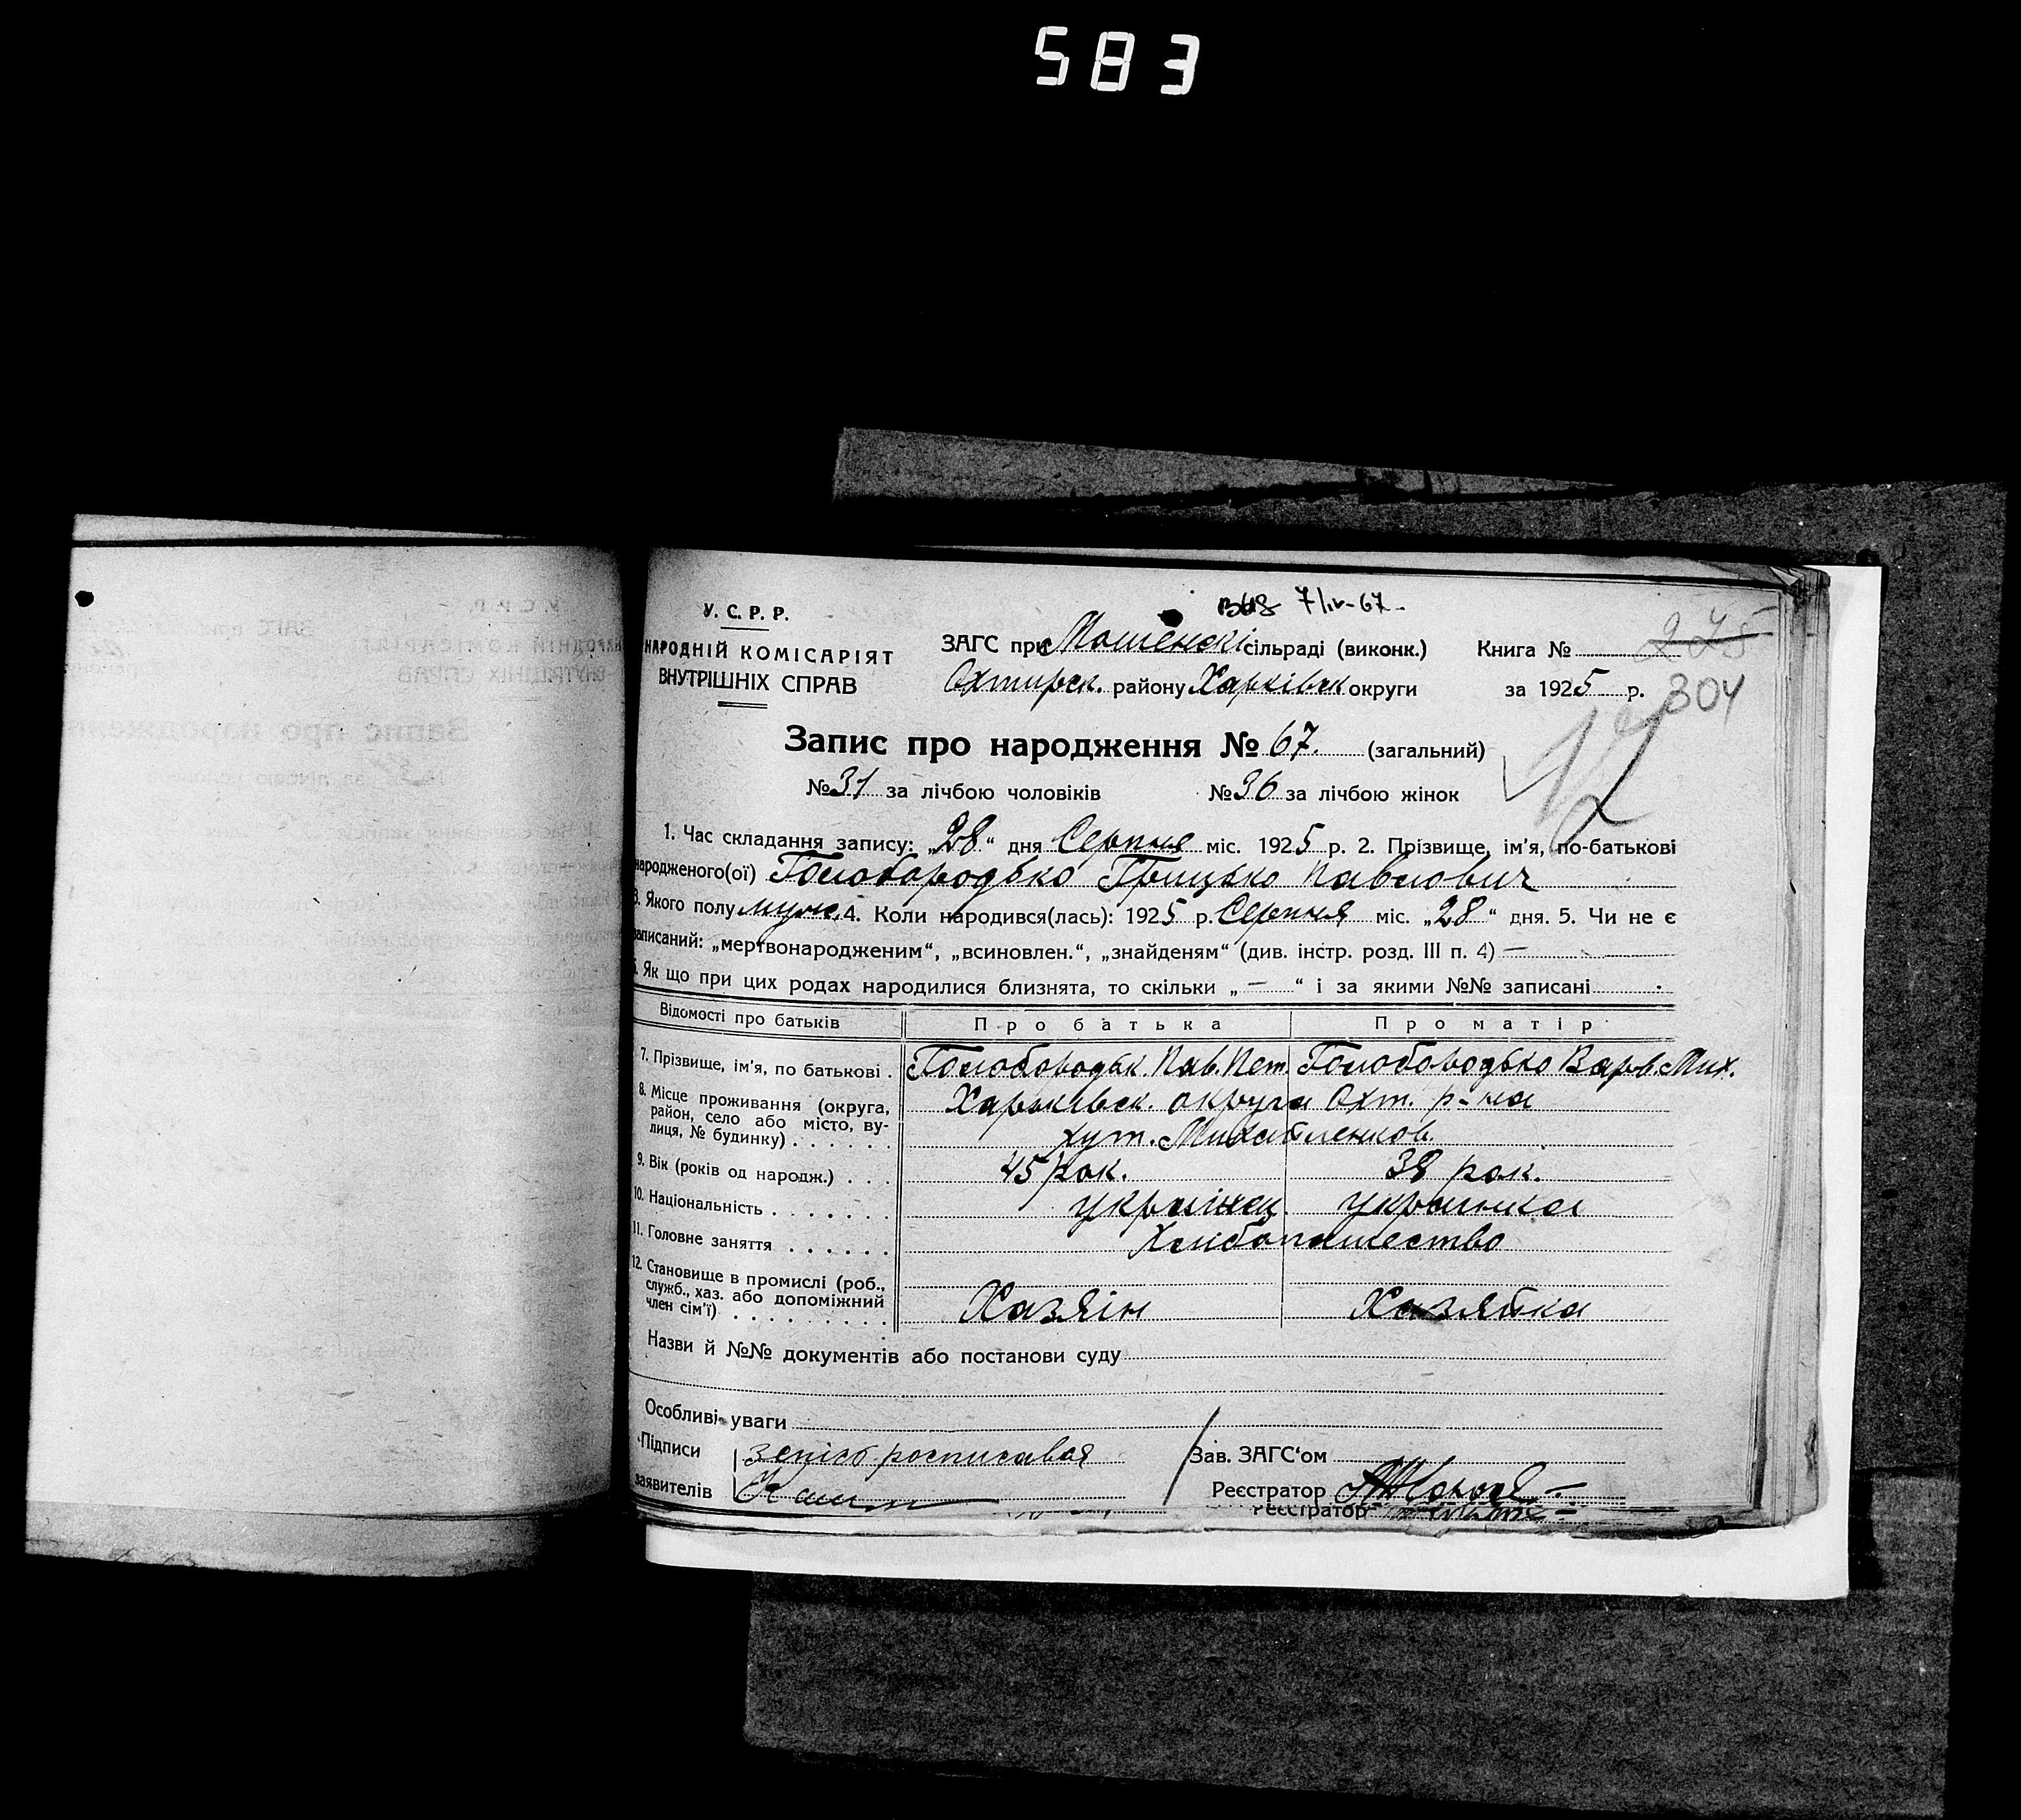 583
У. С. Р. Р.
НАРОДНІЙ КОМІСАРІЯТ
ВНУТРІШНІХ СПРАВ
7/IV-67
ЗАГС при Мошенскі сільраді (виконк.) Книга № 275
Охтирск. району Харківск округи за 1925 р. 304
Запис про народження № 67. (загальний)
№ 31 за лічбою чоловіків № 36 за лічбою жінок
12
1. Час складання запису: „28“ дня Серпня міс. 1925 р. 2. Прізвище, ім'я, по-батькові
народженого(ої) Голобородько Грицько Павлович
3. Якого полу муж. 4. Коли народився(лась): 1925 р. Серпня міс. „28“ дня. 5. Чи не є
записаний: „мертвонародженим“, „всиновлен.“, „знайденям“ (див. інстр. розд. III п. 4) —
6. Як що при цих родах народилися близнята, то скільки „—“ і за якими №№ записані
Відомості про батьків Про батька Про матір
7. Прізвище, ім'я, по батькові . Голобородьк. Пав. Пет. Голобородько Варв. Мих.
8. Місце проживання (округа, район, село або місто, вулиця, № будинку) . . . . . . Харьківск. округа Охт. р-на
хут. Михайленков.
9. Вік (років од народж.) . . . 45 рок. 38 рок.
10. Національність . . . . . . . українец. українка
11. Головне заняття . . . . . . Хлібопашество
12. Становище в промислі (роб., служб., хаз. або допоміжний член сім'ї) . . . . . . . . . Хазяін Хазяйка
Назви й №№ документів або постанови суду
Особливі уваги
Підписи росписавая Зав. ЗАГС'ом
заявителів Реєстратор
Реєстратор